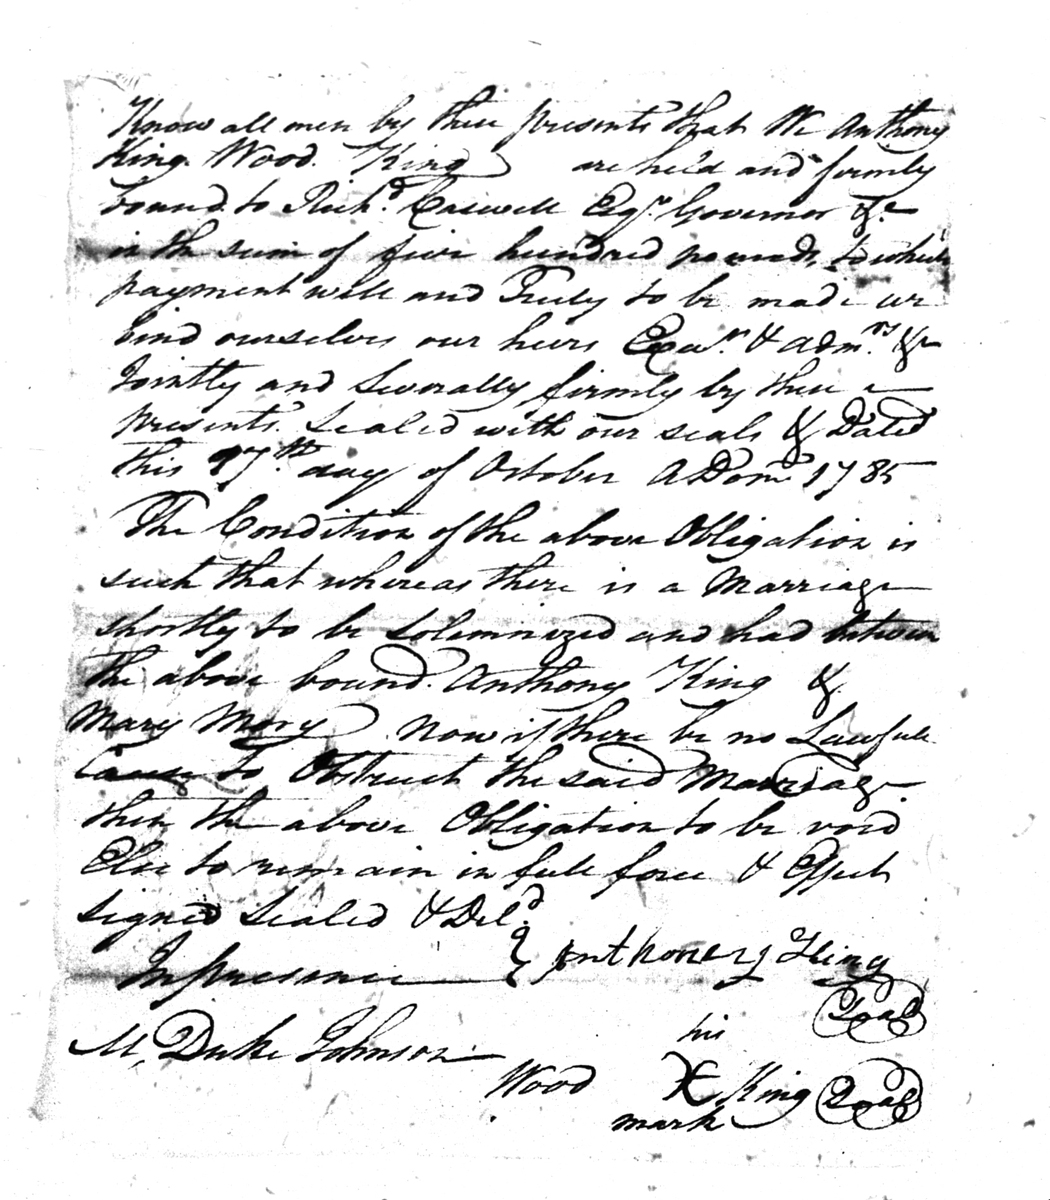 Know all men by these presents that We Anthony
King Wood King are held and firmly
bound to Richd. Caswell Esqr. Governor &c
in the sum of five hundred pounds, to which
payment well and Truly to be made we
bind ourselves our heirs Exeurs. & admrs. &c
Jointly and Severally firmly by these
presents. Sealed with our seals & Dated
this 17th. day of October A Dom 1785
The Condition of the above Obligation is
such that whereas there is a Marriage
shortly to be solemnized and had between
the above bound. Anthony King &
Mary Mory Now if there be no Lawfull
Cause to Obstruct the said Marriage
then the above Obligation to be void
Else to remain in full force & Effect
signed Sealed & Deld.
In presence } Anthoney King
Seal
M, Duke Johnson his
Wood X King Seal
mark